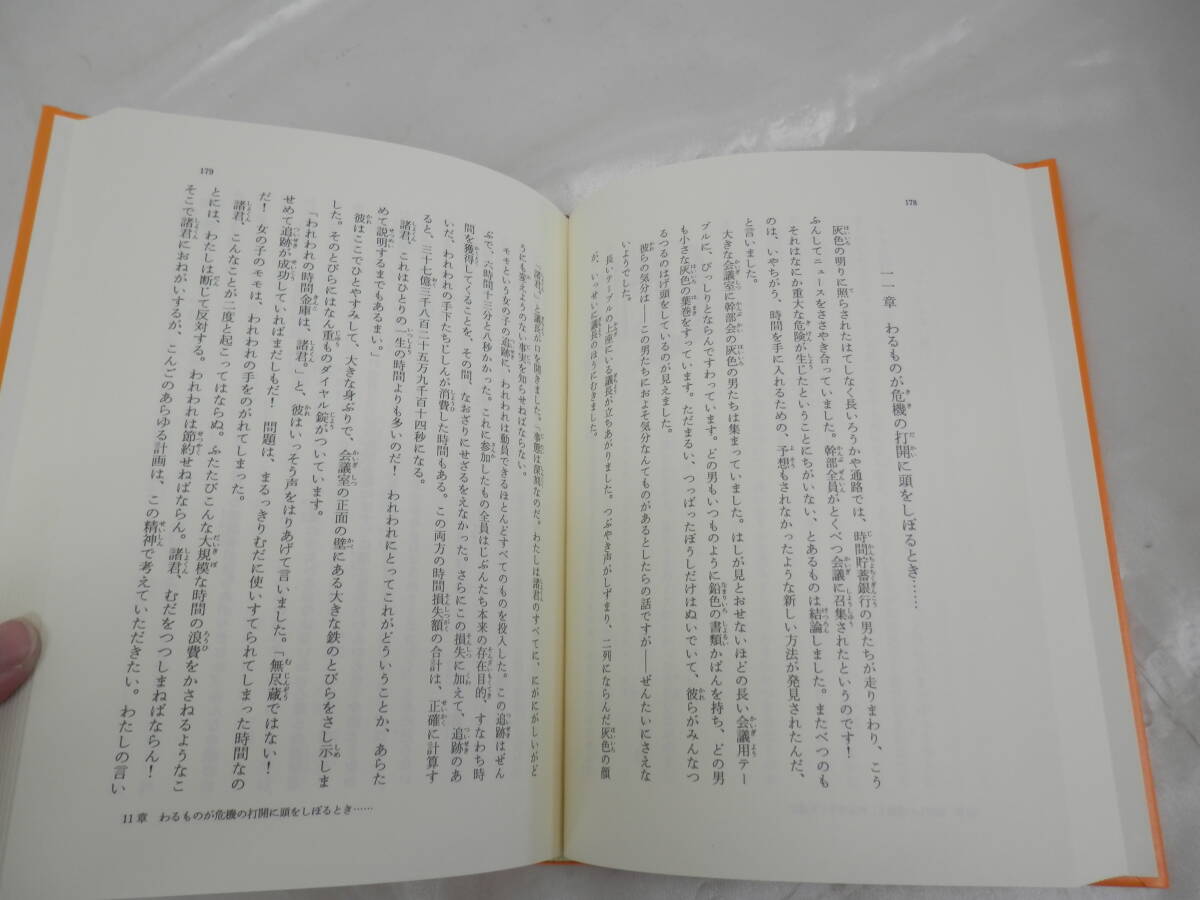 178
一一章　わるものが危機の打開に頭をしぼるとき……
灰色の明りに照らされたはてしなく長いろうかや通路では、時間貯蓄銀行の男たちが走りまわり、こう
ふんしてニュースをささやき合っていました。幹部全員がとくべつ会議に召集されたというのです！
それはなにか重大な危険が生じたということにちがいない、とあるものは結論しました。またべつのも
のは、いやちがう、時間を手に入れるための、予想もされなかったような新しい方法が発見されたんだ、
と言いました。
大きな会議室に幹部会の灰色の男たちは集まっていました。はしが見とおせないほどの長い会議用テー
ブルに、びっしりとならんですわっています。どの男もいつものように鉛色の書類かばんを持ち、どの男
も小さな灰色の葉巻をすっています。ただまるい、つっぱったぼうしだけはぬいでいて、彼らがみんなつ
るつるのはげ頭をしているのが見えました。
彼らの気分は――この男たちにおよそ気分なんてものがあるとしたらの話ですが――ぜんたいにさえな
いようでした。
長いテーブルの上座にいる議長が立ちあがりました。つぶやき声がしずまり、二列にならんだ灰色の顔
が、いっせいに議長のほうにむきました。
179
「諸君。」と議長が口を開きました。「事態は深刻なのだ。わたしは諸君のすべてに、にがにがしいがど
うにも変えようのない事実を知らせねばならない。
モモという女の子の追跡に、われわれは動員できるほとんどすべてのものを投入した。この追跡はぜん
ぶで、六時間十三分と八秒かかった。これに参加したもの全員はじぶんたち本来の存在目的、すなわち時
間を獲得してくることを、その間、なおざりにせざるをえなかった。さらにこの損失に加えて、追跡のあ
いだ、われわれの手下たちじしんが消費した時間もある。この両方の時間損失額の合計は、正確に計算す
ると、三十七億三千八百二十五万九千百十四秒になる。
諸君、これはひとりの一生の時間よりも多いのだ！　われわれにとってこれがどういうことか、あらた
めて説明するまでもあるまい。」
彼はここでひとやすみして、大きな身ぶりで、会議室の正面の壁にある大きな鉄のとびらをさし示しま
した。そのとびらにはなん重ものダイヤル錠がついています。
「われわれの時間金庫は、諸君。」と、彼はいっそう声をはりあげて言いました。「無尽蔵ではない！
せめて追跡が成功していればまだしもだ！　問題は、まるっきりむだに使いすてられてしまった時間なの
だ！　女の子のモモは、われわれの手をのがれてしまった。
諸君、こんなことが二度と起こってはならぬ。ふたたびこんな大規模な時間の浪費をかさねるようなこ
とには、わたしは断じて反対する。われわれは節約せねばならん。諸君、むだをつつしまねばならん！
そこで諸君におねがいするが、こんごのあらゆる計画は、この精神で考えていただきたい。わたしの言い
11章　わるものが危機の打開に頭をしぼるとき……